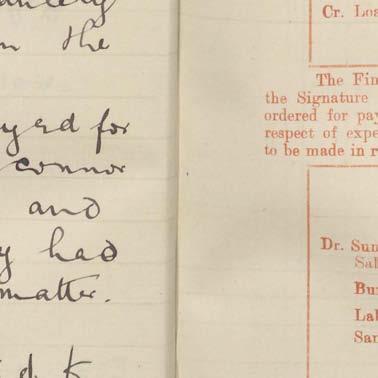 in the
for
connor
and
had
matter.
Cr. Loa
The Fin
the Signature
ordered for pay
respect of expe
to be made in r
Dr. Sun
Sal
Bu
Lab
San